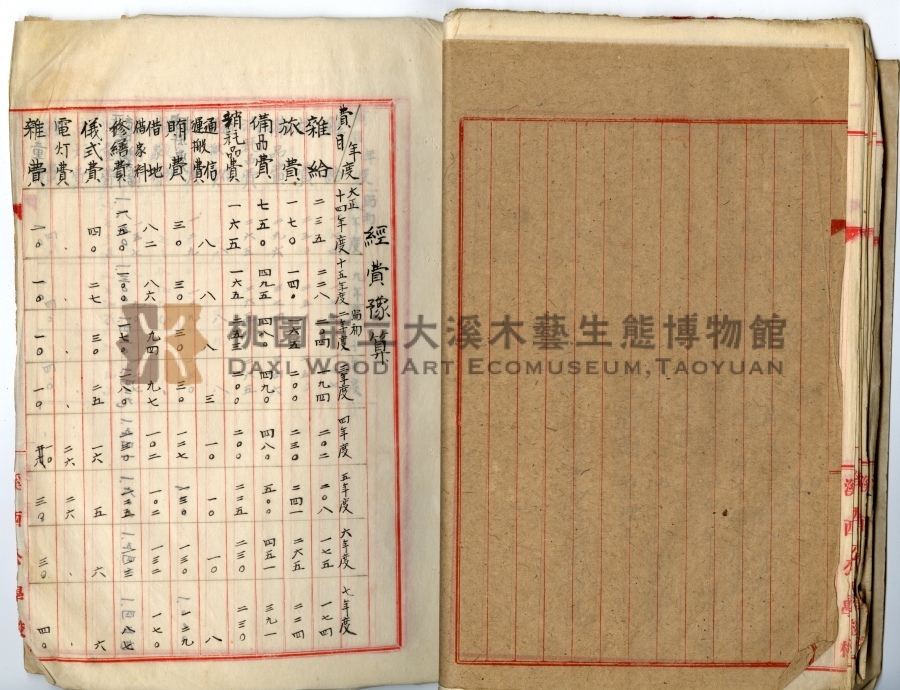 經費豫算
費目/年度 大正十四年度 十五年度 昭和二年度 三年度 四年度 五年度 六年度 七年度
雜給 二三五 二二八 二〇四 一九四 二〇二 二〇八 一七五 一七四
旅費 一七〇 一四〇 一六五 二〇〇 二三〇 二四一 二六五 二二四
備品費 七五〇 四九五 四八〇 四九〇 四八〇 五〇〇 四五一 三九一
消耗品費 一六五 一六五 二〇〇 二〇〇 二二五 二三〇 二三〇
通信運搬費 八 八 八 三 一〇 一〇 一〇 八
賄費 三〇 三〇 三〇 三〇 一二七 一三〇 一三〇
借地借家料 八二 八六 九四 九七 一〇二 一〇二 一三二 一七〇
修繕費
儀式費 四〇 二七 三〇 二五 一六 五 六 六
電灯費 、 、 、 、 二六 二六 、 、
雜費 二〇 一〇 一〇 一〇 三〇 三〇 四〇
桃園市立大溪木藝生態博物館
DAXI WOOD ART ECOMUSEUM, TAOYUAN